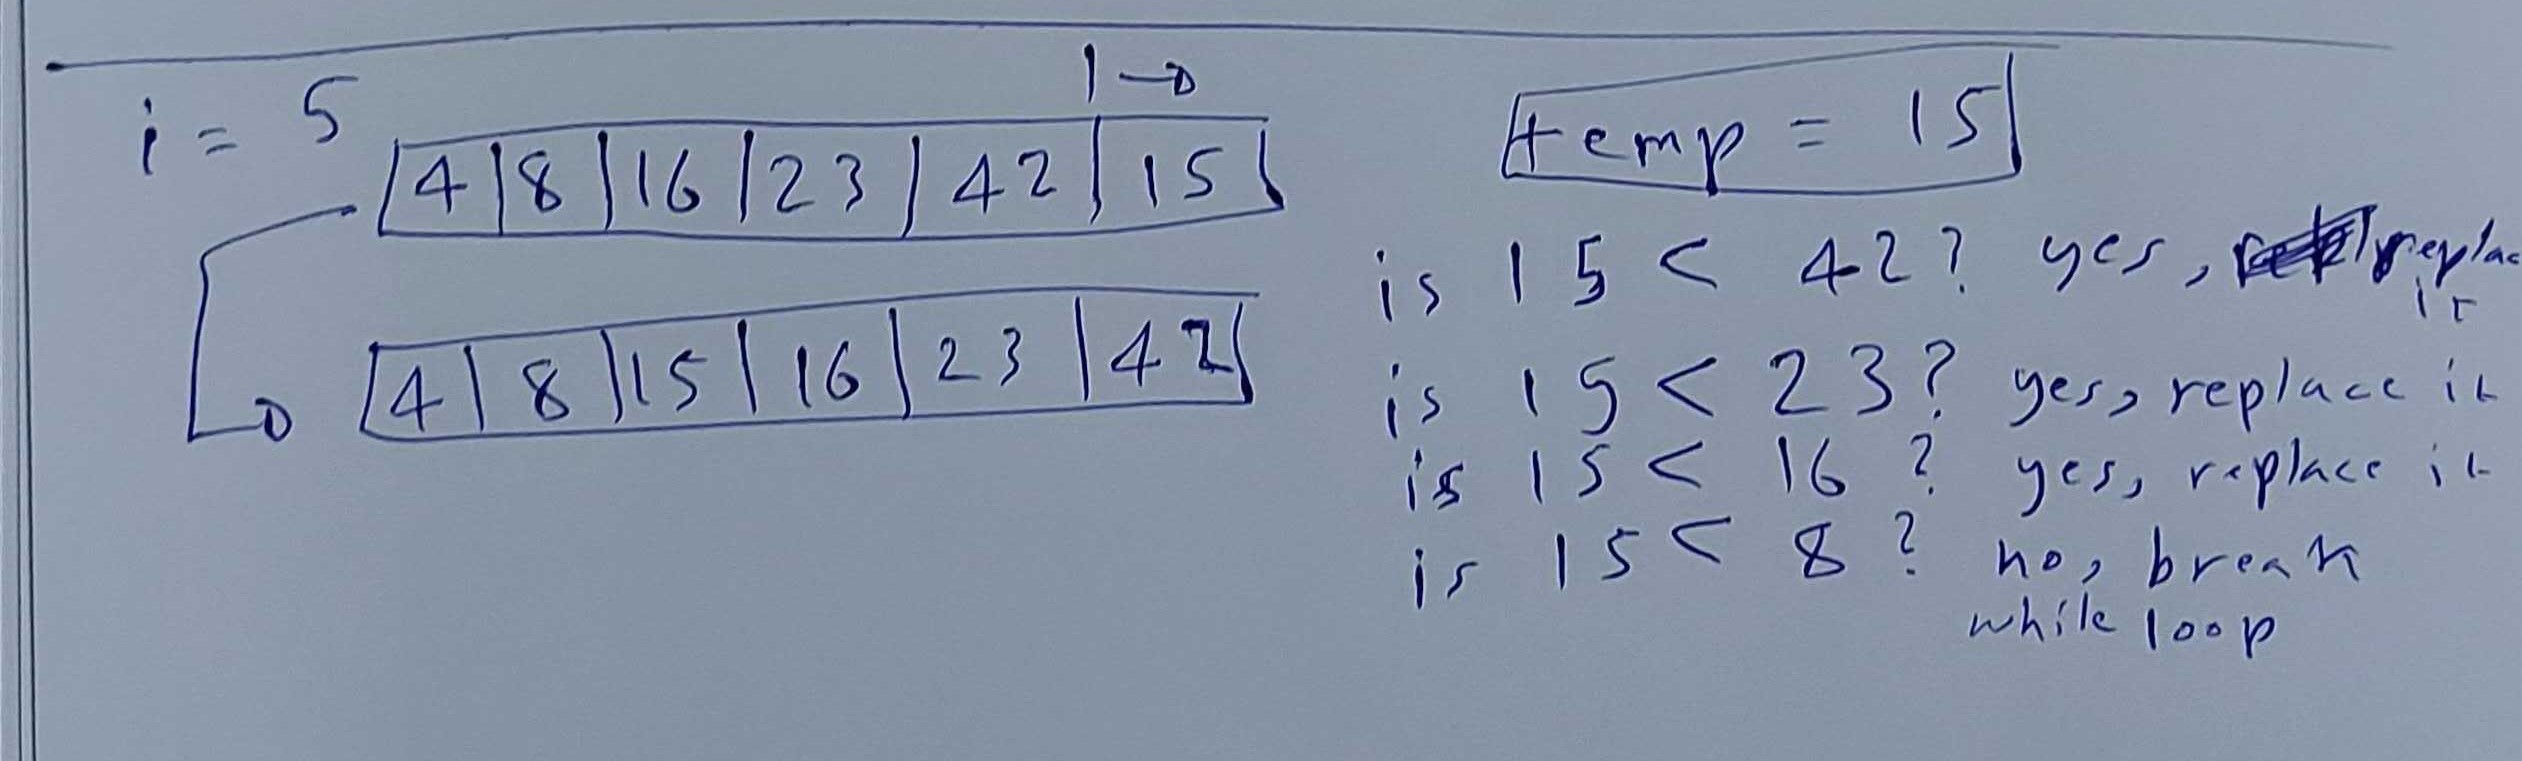 i = 5
4 | 8 | 16 | 23 | 42 | 15
4 | 8 | 15 | 16 | 23 | 42
temp = 15
is 15 < 42? yes, replac
it
is 15 < 23? yes, replace it
is 15 < 16? yes, replace it
is 15 < 8? no, break
while loop